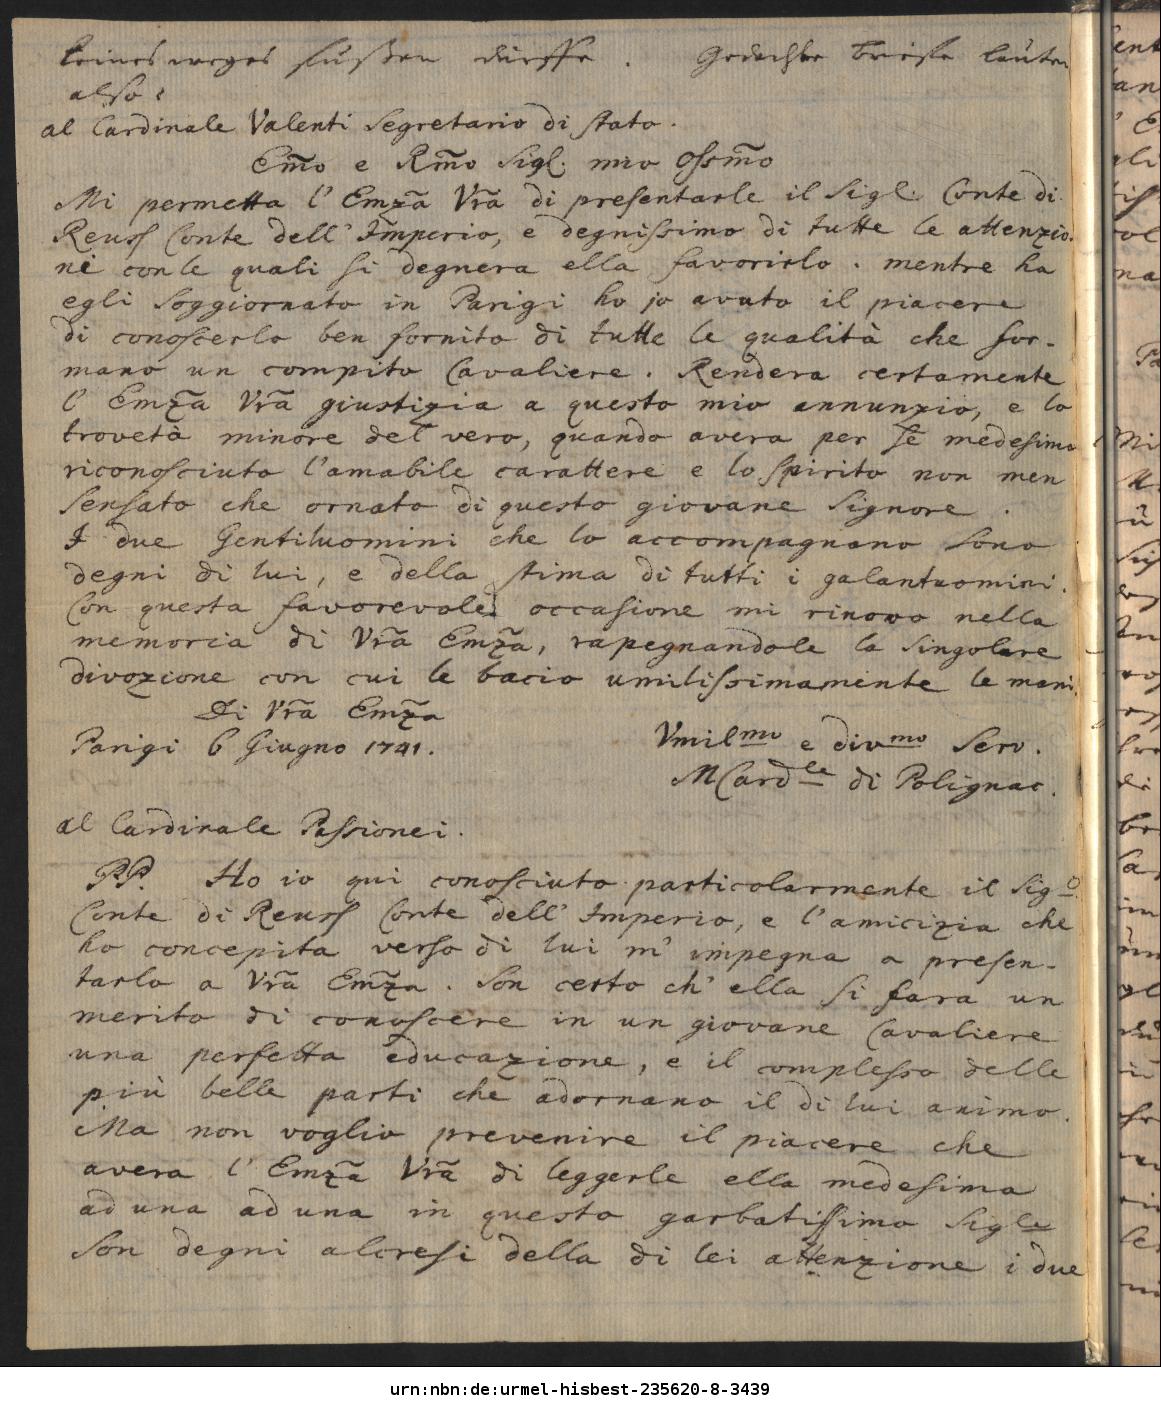 keines weges fußen dürffe. Gedachte briefe lauten
also:
al Cardinale Valenti Segretario di stato.
Em̃o e Rm̃o Sigl. mio Ossm̃o
Mi permetta l' Emz̃a Vrã di presentarle il Sigl. Conte di
Reuss Conte dell' Imperio, e degnissimo di tutte le attenzio.
ni con le quali si degnera ella favorirlo. mentre ha
egli Soggiornato in Parigi ho jo avuto il piacere
di conoscerlo ben fornito di tutte le qualità che for-
mano un compito Cavaliere. Rendera certamente
l' Emz̃a Vrã giustizia a questo mio annunzio, e lo
trovetà minore del vero, quando avera per se medesimo
riconosciuto l'amabile carattere e lo spirito non men
sensato che ornato di questo giovane Signore.
I due Gentiluomini che lo accompagnano sono
degni di lui, e della stima di tutti i galantuomini.
Con questa favorevole occasione mi rinovo nella
memoria di Vrã Emz̃a, rapegnandole la singolare
divozione con cui le bacio umilissimamente le mani.
Di Vrã Emz̃a
Parigi 6 Giugno 1741.
Vmilmo e divmo Serv.
M Cardle di Polignac.
al Cardinale Passionei.
P.P. Ho io qui conosciuto particolarmente il Sigo
Conte di Reuss Conte dell' Imperio, e l'amicizia che
ho concepita verso di lui m' impegna a presen-
tarlo a Vrã Emz̃a. Son certo ch' ella si fara un
merito di conoscere in un giovane Cavaliere
una perfetta educazione, e il complesso delle
più belle parti che adornano il di lui animo.
Ma non voglio prevenire il piacere che
avera l' Emz̃a Vrã di leggerle ella medesima
ad una ad una in questo garbatissimo Sigle
Son degni alcresi della di lei attenzione i due
urn:nbn:de:urmel-hisbest-235620-8-3439